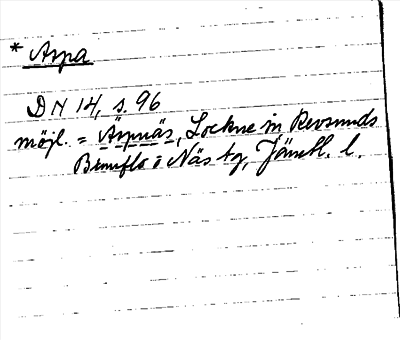 * Aspa
DN 14, s. 96
möjl. = Äspnäs, Lockne i n Revsunds
Brunflo o Näs tg, Jämtl. l.